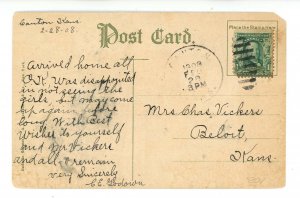 Canton Kans.
2-28-08.
Post Card.
Place the Stamp here
Arrived home all
O.K. Was disappointed
in not seeing the
girls, but may come
up again before
long. With best
wishes to yourself
and Mr Vickers
and all, I remain
Very Sincerely
C.E. Godown.
CANTON
1908
FEB
28
PM
Mrs Chas. Vickers
Beloit,
Kans.